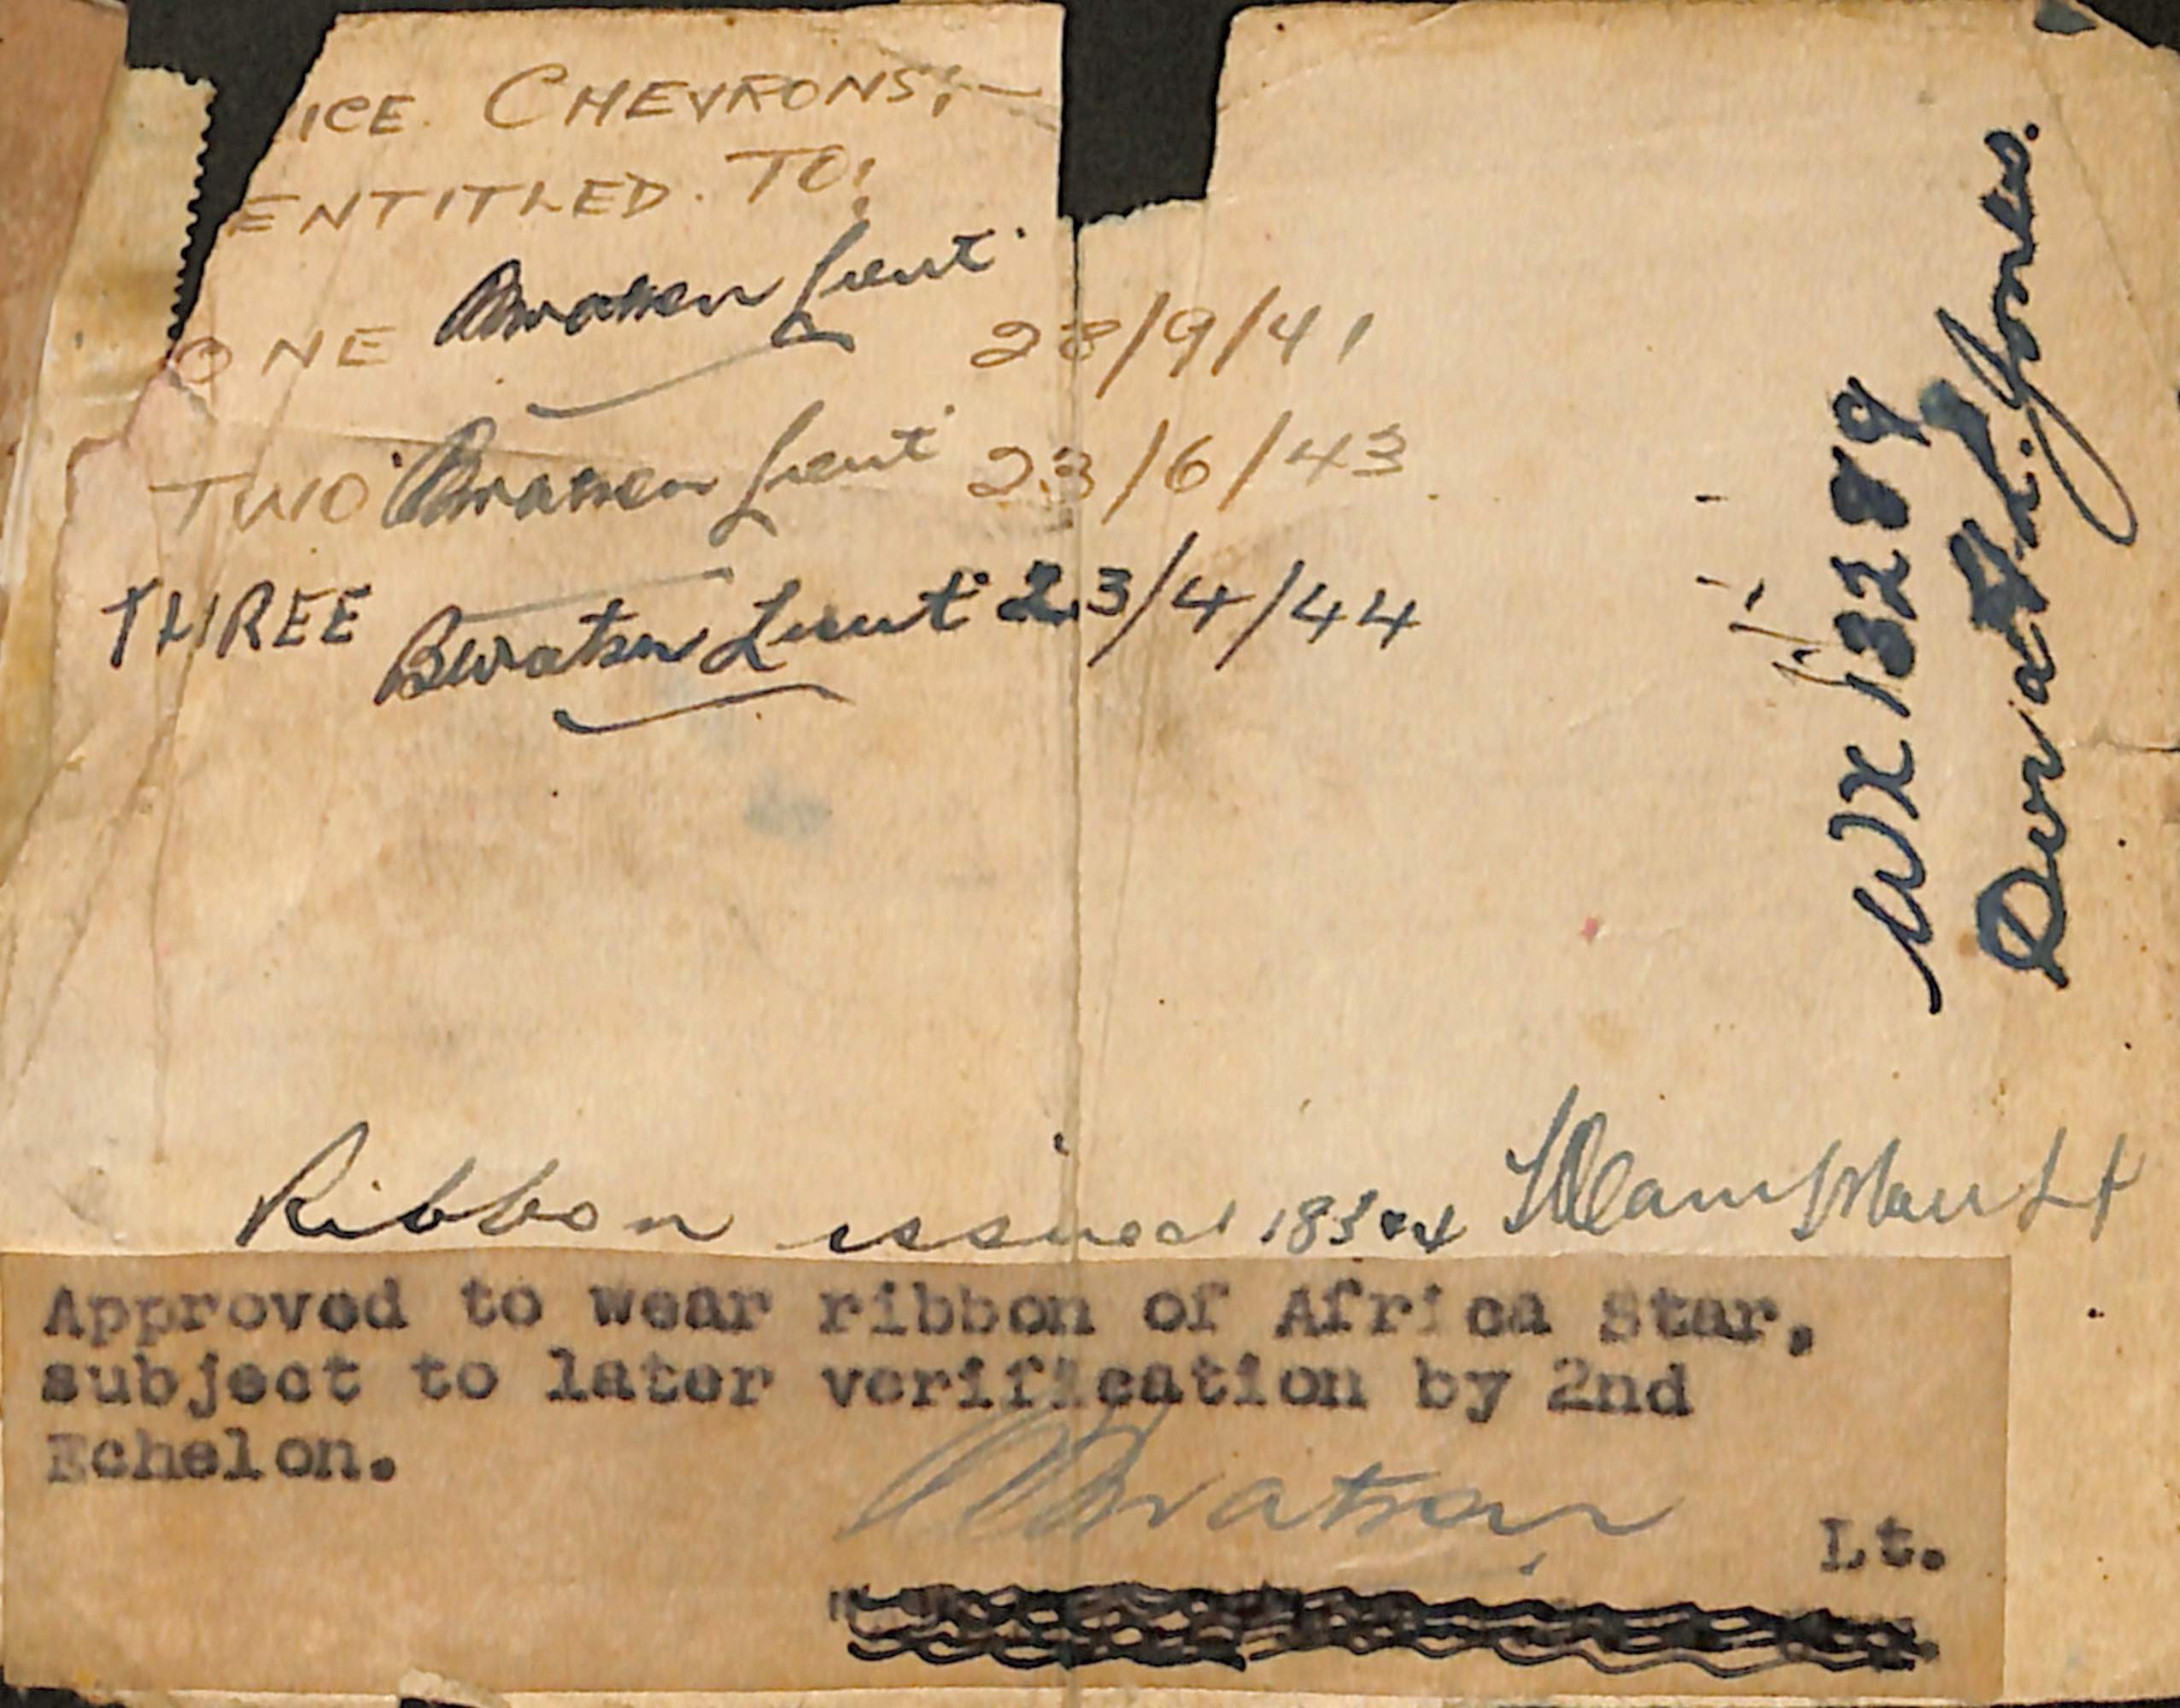 ICE CHEVRONS:-
ENTITLED TO:
ONE Bwatson Lieut. 28/9/41
TWO Bwatson Lieut 23/6/43
THREE Bwatson Lieut 23/4/44
WX 13289
Jones.
Ribbon issued Lt
Approved to wear ribbon of Africa Star,
subject to later verification by 2nd
Echelon.
Bwatson
Lt.